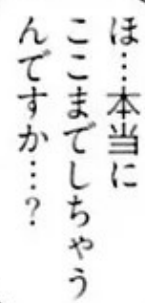 ほ…本当に
ここまでしちゃう
んですか…？